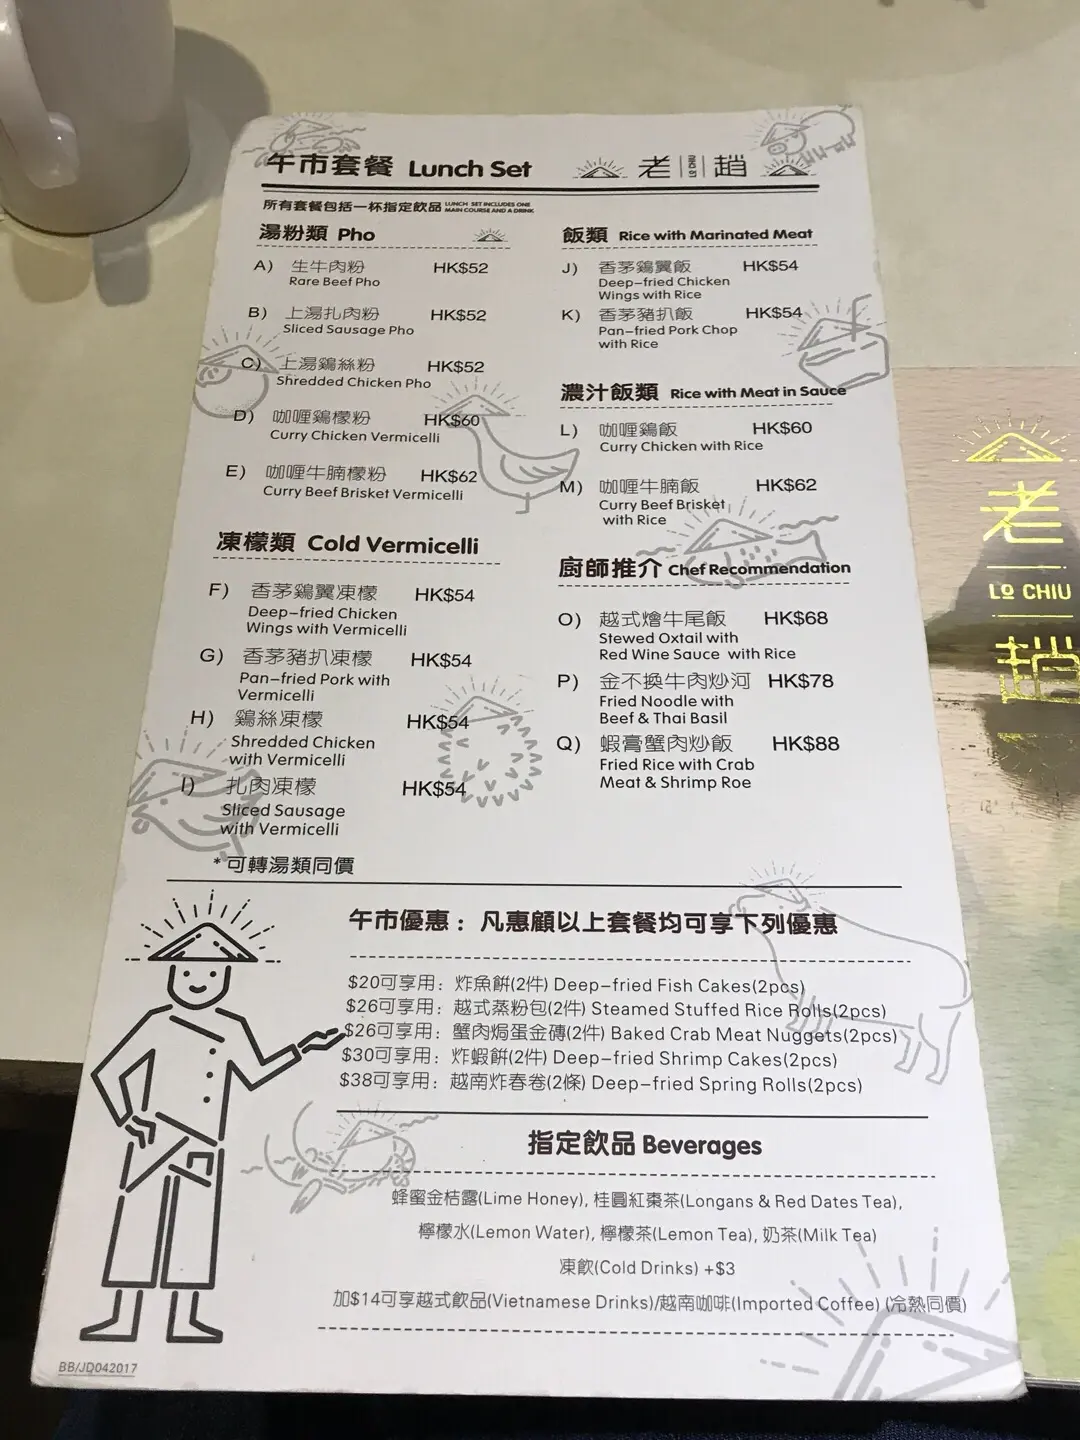 午市套餐 Lunch Set
老趙
所有套餐包括一杯指定飲品 LUNCH SET INCLUDES ONE
MAIN COURSE AND A DRINK
湯粉類 Pho
A) 生牛肉粉 HK$52
Rare Beef Pho
B) 上湯扎肉粉 HK$52
Sliced Sausage Pho
C) 上湯鷄絲粉 HK$52
Shredded Chicken Pho
D) 咖喱鷄檬粉 HK$60
Curry Chicken Vermicelli
E) 咖喱牛腩檬粉 HK$62
Curry Beef Brisket Vermicelli
凍檬類 Cold Vermicelli
F) 香茅鷄翼凍檬 HK$54
Deep-fried Chicken
Wings with Vermicelli
G) 香茅豬扒凍檬 HK$54
Pan-fried Pork with
Vermicelli
H) 鷄絲凍檬 HK$54
Shredded Chicken
with Vermicelli
I) 扎肉凍檬 HK$54
Sliced Sausage
with Vermicelli
*可轉湯類同價
飯類 Rice with Marinated Meat
J) 香茅鷄翼飯 HK$54
Deep-fried Chicken
Wings with Rice
K) 香茅豬扒飯 HK$54
Pan-fried Pork Chop
with Rice
濃汁飯類 Rice with Meat in Sauce
L) 咖喱鷄飯 HK$60
Curry Chicken with Rice
M) 咖喱牛腩飯 HK$62
Curry Beef Brisket
with Rice
廚師推介 Chef Recommendation
O) 越式燴牛尾飯 HK$68
Stewed Oxtail with
Red Wine Sauce with Rice
P) 金不換牛肉炒河 HK$78
Fried Noodle with
Beef & Thai Basil
Q) 蝦膏蟹肉炒飯 HK$88
Fried Rice with Crab
Meat & Shrimp Roe
午市優惠：凡惠顧以上套餐均可享下列優惠
$20可享用：炸魚餅(2件) Deep-fried Fish Cakes(2pcs)
$26可享用：越式蒸粉包(2件) Steamed Stuffed Rice Rolls(2pcs)
$26可享用：蟹肉焗蛋金磚(2件) Baked Crab Meat Nuggets(2pcs)
$30可享用：炸蝦餅(2件) Deep-fried Shrimp Cakes(2pcs)
$38可享用：越南炸春卷(2條) Deep-fried Spring Rolls(2pcs)
指定飲品 Beverages
蜂蜜金桔露(Lime Honey), 桂圓紅棗茶(Longans & Red Dates Tea),
檸檬水(Lemon Water), 檸檬茶(Lemon Tea), 奶茶(Milk Tea)
凍飲(Cold Drinks) +$3
加$14可享越式飲品(Vietnamese Drinks)/越南咖啡(Imported Coffee) (冷熱同價)
BB/JD042017
老
LO CHIU
趙